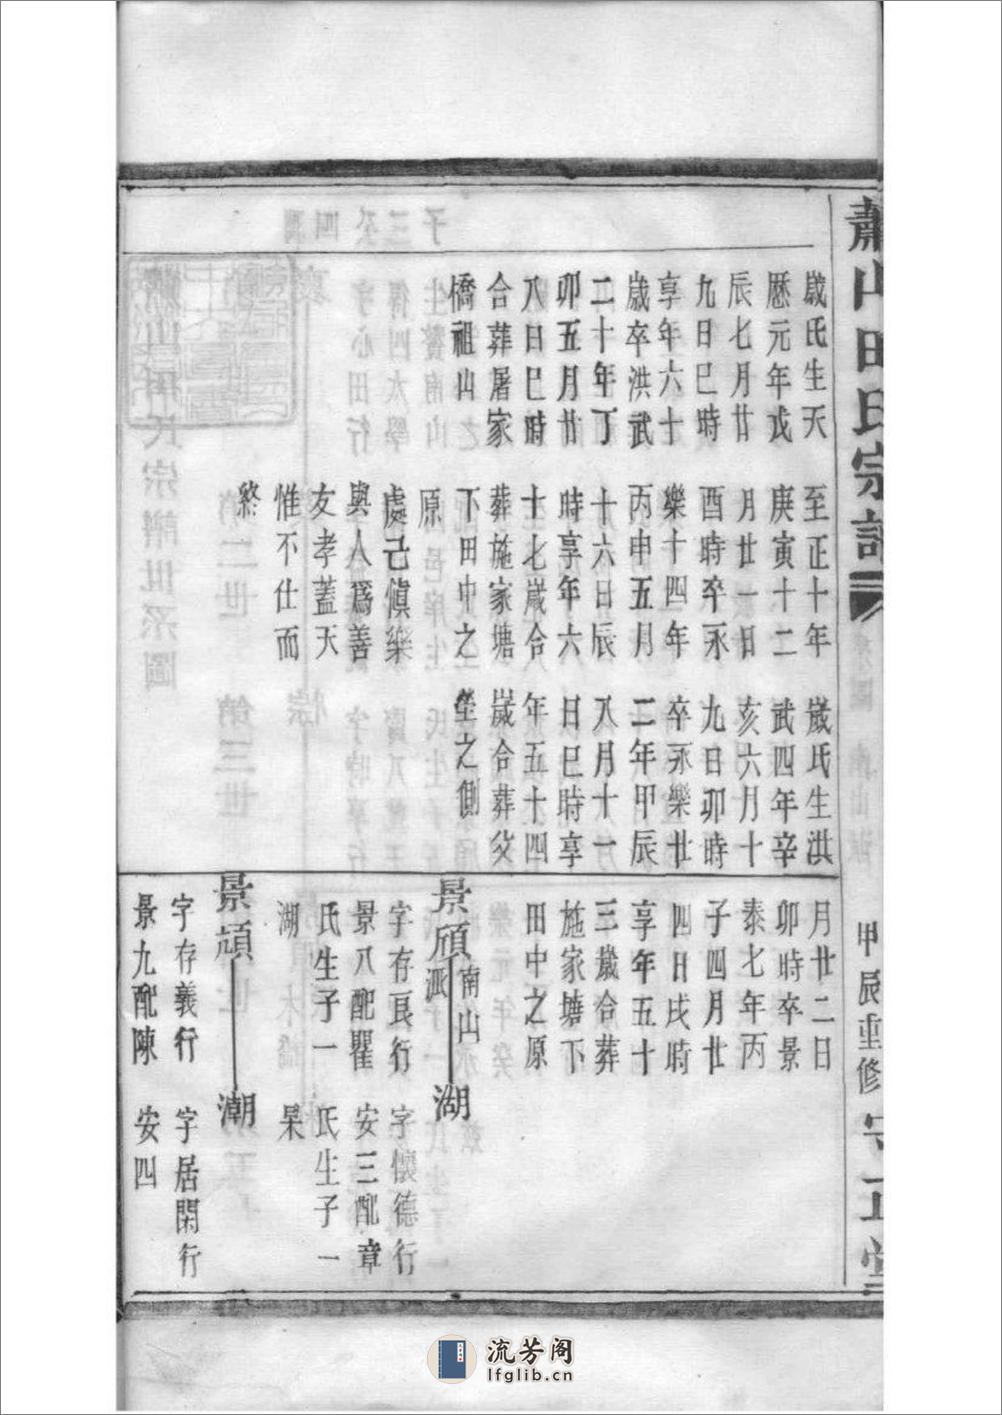 蕭山田氏宗譜
甲辰重修
歲氏生天
歷元年戊
辰七月廿
九日巳時
享年六十
歲卒洪武
二十年丁
卯五月廿
八日巳時
合葬屠家
橋祖山
至正十年
庚寅十二
月廿一日
酉時卒永
樂十四年
丙申五月
十六日辰
時享年六
十七歲合
葬施家塘
下田中之
原
處己慎樂
與人爲善
友孝蓋天
惟不仕而
終
歲氏生洪
武四年辛
亥六月十
九日卯時
卒永樂廿
二年甲辰
八月十一
日巳時享
年五十四
歲合葬父
塋之側
月廿二日
卯時卒景
泰七年丙
子四月廿
四日戌時
享年五十
三歲合葬
施家塘下
田中之原
景頎
南山
派
湖
字存良行
景八配瞿
氏生子一
湖
字懷德行
安三配章
氏生子一
杲
景頑
潮
字存義行
景九配陳
字居閑行
安四
流芳阁
lfglib.cn